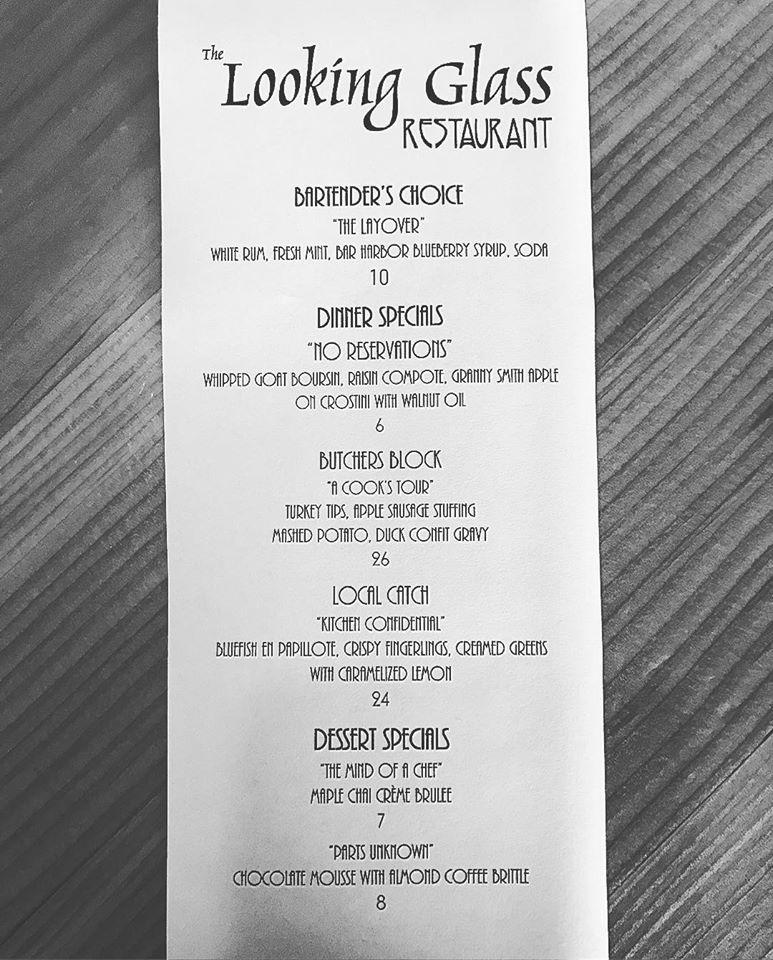 The
Looking Glass
RESTAURANT
BARTENDER'S CHOICE
"THE LAYOVER"
WHITE RUM, FRESH MINT, BAR HARBOR BLUEBERRY SYRUP, SODA
10
DINNER SPECIALS
"NO RESERVATIONS"
WHIPPED GOAT BOURSIN, RAISIN COMPOTE, GRANNY SMITH APPLE
ON CROSTINI WITH WALNUT OIL
6
BUTCHERS BLOCK
"A COOK'S TOUR"
TURKEY TIPS, APPLE SAUSAGE STUFFING
MASHED POTATO, DUCK CONFIT GRAVY
26
LOCAL CATCH
"KITCHEN CONFIDENTIAL"
BLUEFISH EN PAPILLOTE, CRISPY FINGERLINGS, CREAMED GREENS
WITH CARAMELIZED LEMON
24
DESSERT SPECIALS
"THE MIND OF A CHEF"
MAPLE CHAI CRÈME BRULEE
7
"PARTS UNKNOWN"
CHOCOLATE MOUSSE WITH ALMOND COFFEE BRITTLE
8